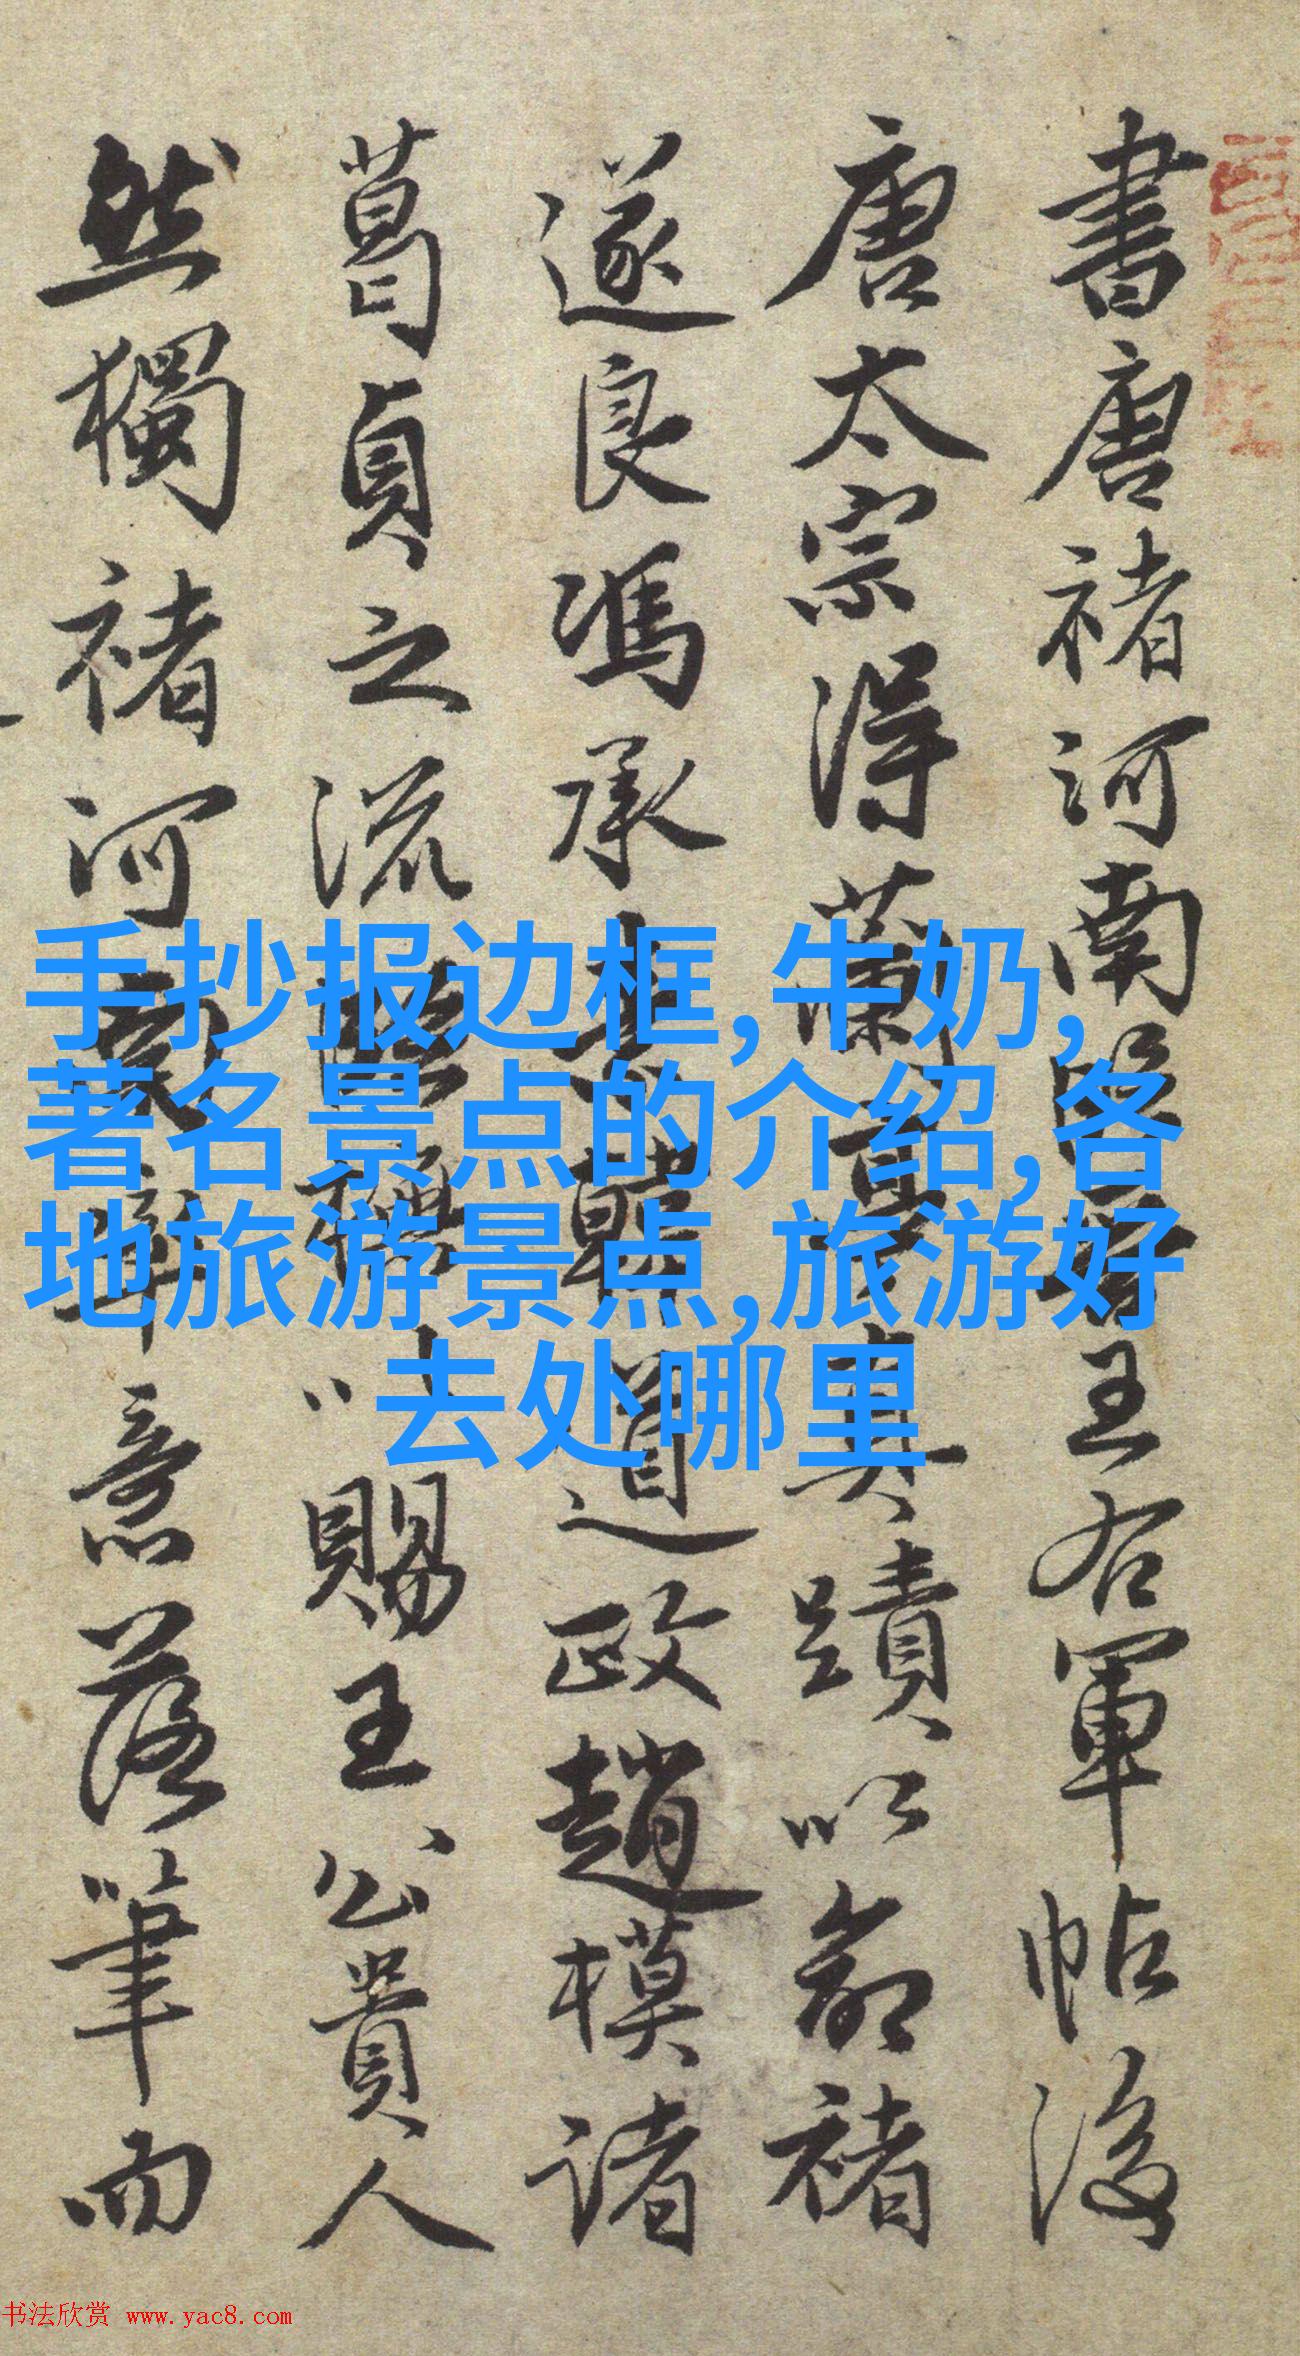 書唐褚河南臨晉王右軍帖後
唐太宗得蘭亭真蹟以命褚
遂良馮承素韓道政趙模諸
葛貞之流以賜王公貴人
然獨褚河南率意落筆而
手抄报边框,牛奶,
著名景点的介绍,各
地旅游景点,旅游好
去处哪里
书法欣赏 www.yac8.com